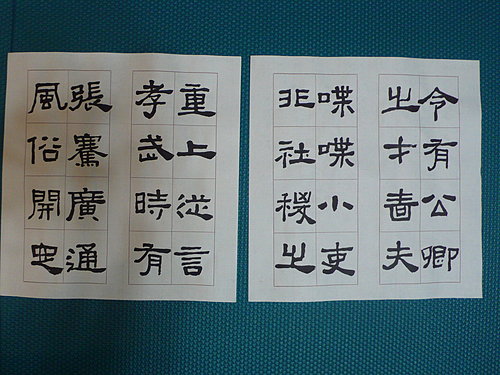 令有公卿
之才嗇夫
喋喋小吏
非社稷之
重上從言
孝武時有
張騫廣通
風俗開定